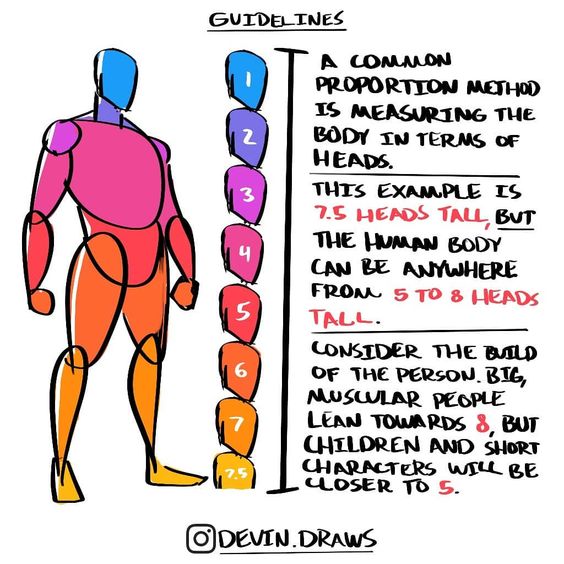 GUIDELINES
1
2
3
4
5
6
7
7.5
A COMMON
PROPORTION METHOD
IS MEASURING THE
BODY IN TERMS OF
HEADS.
THIS EXAMPLE IS
7.5 HEADS TALL, BUT
THE HUMAN BODY
CAN BE ANYWHERE
FROM 5 TO 8 HEADS
TALL.
CONSIDER THE BUILD
OF THE PERSON. BIG,
MUSCULAR PEOPLE
LEAN TOWARDS 8, BUT
CHILDREN AND SHORT
CHARACTERS WILL BE
CLOSER TO 5.
DEVIN.DRAWS